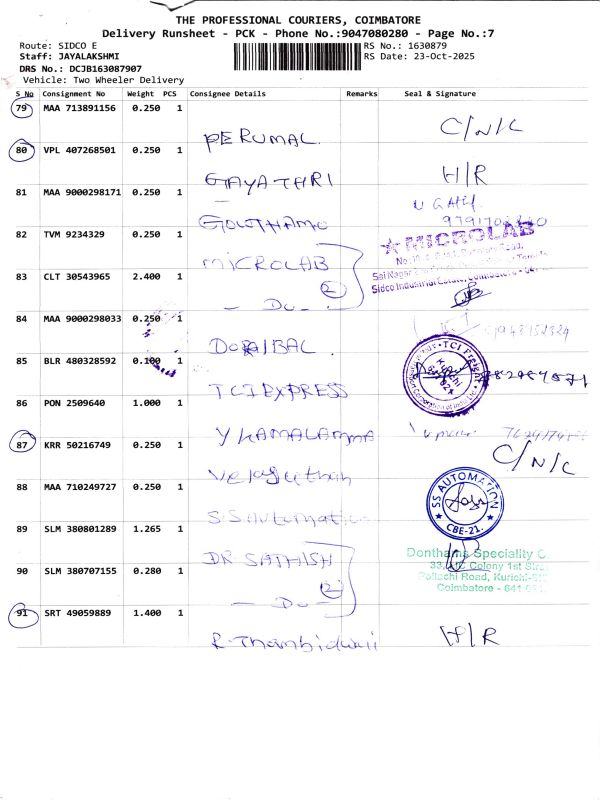 THE PROFESSIONAL COURIERS, COIMBATORE
Delivery Runsheet - PCK - Phone No.:9047080280 - Page No.:7
Route: SIDCO E
RS No.: 1630879
Staff: JAYALAKSHMI
RS Date: 23-Oct-2025
DRS No.: DCJB163087907
Vehicle: Two Wheeler Delivery
S No Consignment No Weight PCS Consignee Details Remarks Seal & Signature
79 MAA 713891156 0.250 1
PERUMAL C/N/C
80 VPL 407268501 0.250 1
GAYATHRI H/R
81 MAA 9000298171 0.250 1
GOWTHAMC
82 TVM 9234329 0.250 1
MICROLAB
★ MICROLAB
83 CLT 30543965 2.400 1
- Do - 2
Sidco Industrial Estate, Coimbatore
84 MAA 9000298033 0.250 1
85 BLR 480328592 0.100 1
TCI EXPRESS
TCI Freight
86 PON 2509640 1.000 1
Y KAMALAMMA
87 KRR 50216749 0.250 1
C/N/C
88 MAA 710249727 0.250 1
S.S Automation
SS AUTOMATION
CBE-21.
89 SLM 380801289 1.265 1
DR SATHISH
Donthams Speciality C
Colony 1st Str
Pollachi Road, Kurichi
Coimbatore - 641
90 SLM 380707155 0.280 1
- Do - 2
91 SRT 49059889 1.400 1
R. Thambidurai H/R